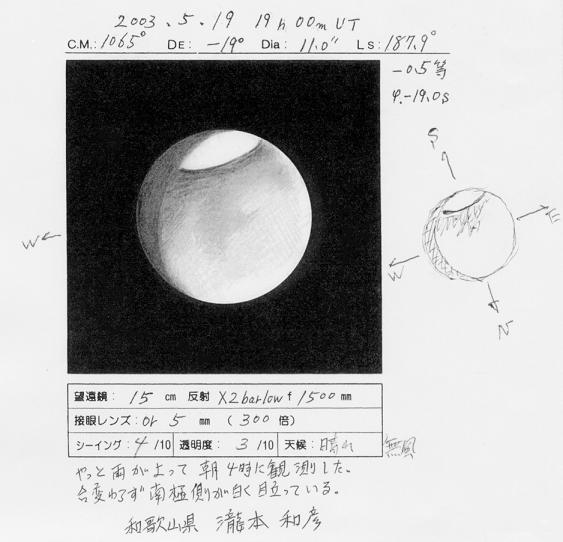 2003.5.19 19h 00m UT
C.M.: 106.5° DE: -19° Dia: 11.0" Ls: 187.9°
-0.5等
φ.-19.0S
S
W
E
W
N
望遠鏡: 15 cm 反射 X2barlow f 1500 mm
接眼レンズ: or 5 mm (300 倍)
シーイング: 4/10 透明度: 3/10 天候: 晴れ 無風
やっと雨が上って 朝4時に観測した。
合変わらず南極側が白く目立っている。
和歌山県 瀧本 和彦